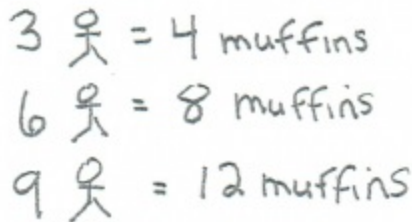 3 = 4 muffins
6 = 8 muffins
9 = 12 muffins